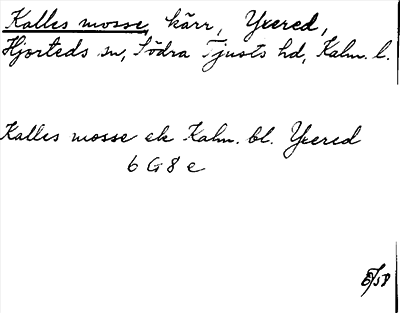 Kalles mosse, kärr, Yxered,
Hjorteds sn, Södra Tjusts hd, Kalm. l.
Kalles mosse ek Kalm. bl. Yxered
6 G 8 e